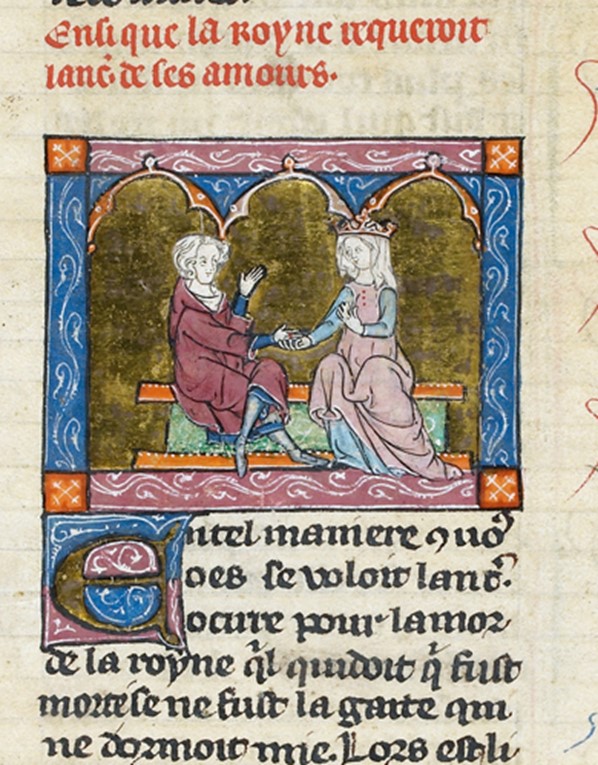 Ensi que la royne requeroit
lanc̄. de ses amours.
Entel maniere ꝯ uoꝰ
oes se voloit lanc̄.
ocirre pour lamor
de la royne q̄l quidoit q̄ fust
morte se ne fust la garte qui
ne dormoit mie. Lors est li